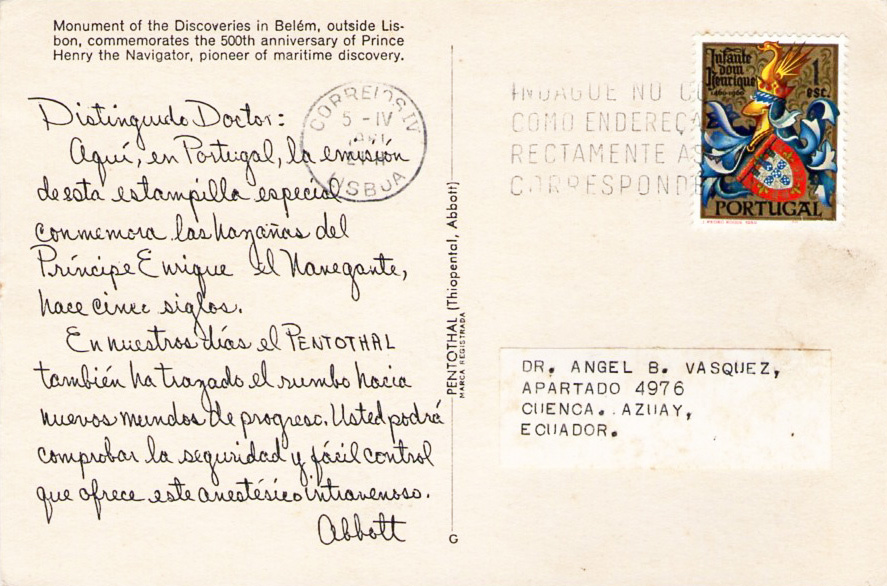 Monument of the Discoveries in Belém, outside Lis-
bon, commemorates the 500th anniversary of Prince
Henry the Navigator, pioneer of maritime discovery.
Distinguido Doctor:
Aquí, en Portugal, la emisión
de esta estampilla especial
conmemora las hazañas del
Príncipe Enrique el Navegante,
hace cinco siglos.
En nuestros días el PENTOTHAL
también ha trazado el rumbo hacia
nuevos mundos de progreso. Usted podrá
comprobar la seguridad y fácil control
que ofrece este anestésico intravenoso.
Abbott
PENTOTHAL (Thiopental, Abbott)
MARCA REGISTRADA
G
CORREIOS
5 - IV
LISBOA
INDAGUE NO
COMO ENDEREÇA
RECTAMENTE AS
CORRESPONDE
Infante
dom
Henrique
1460-1960
1
esc.
PORTUGAL
DR. ANGEL B. VASQUEZ,
APARTADO 4976
CUENCA. AZUAY,
ECUADOR.